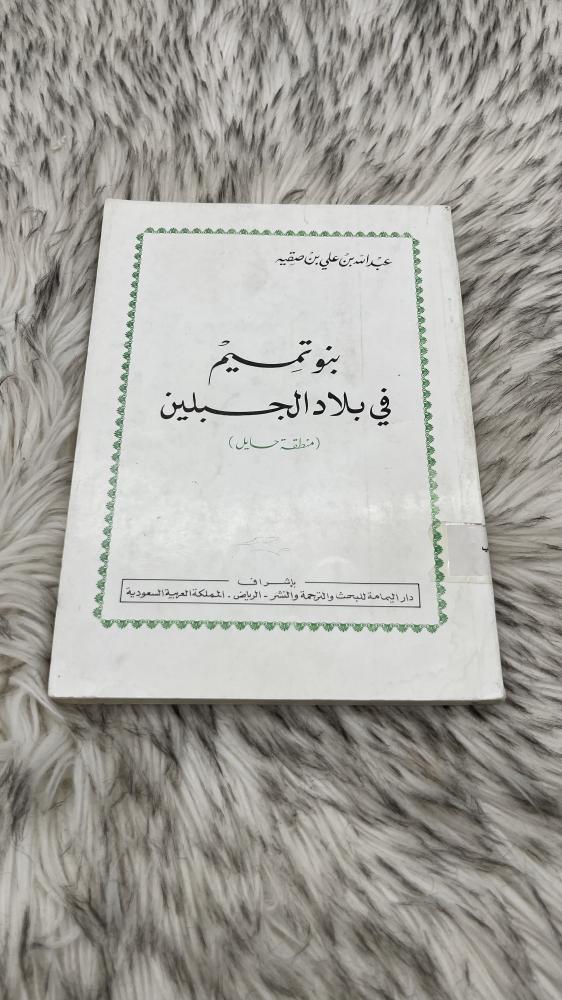 عبدالله بن علي بن صقيه
بنو تميم
في بلاد الجبلين
(منطقة حايل)
بإشراف
دار اليمامة للبحث والترجمة والنشر - الرياض - المملكة العربية السعودية